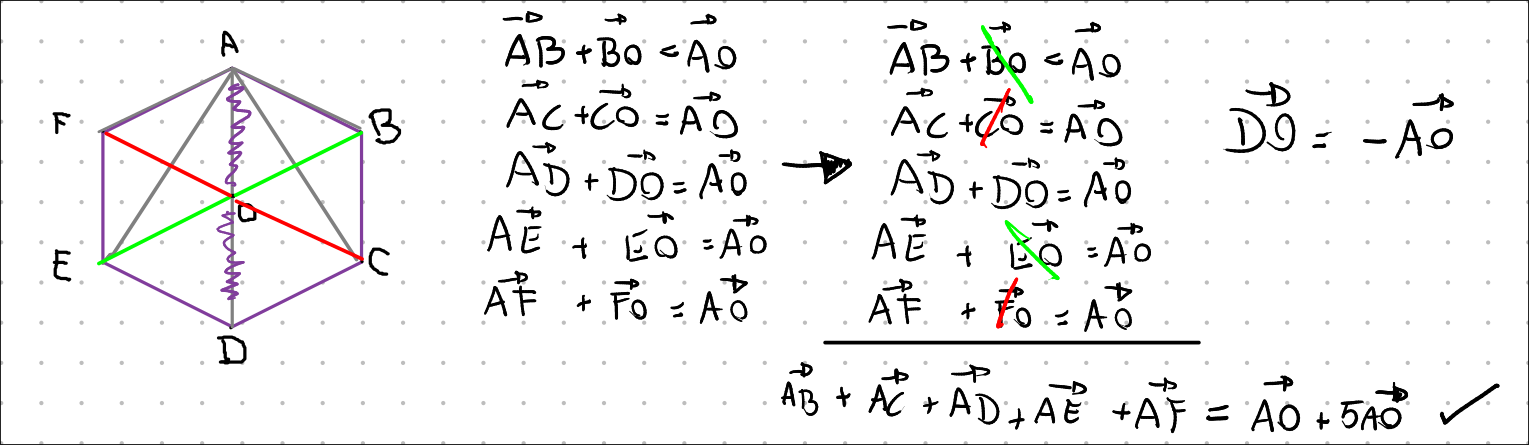 A
F
B
O
E
C
D
→AB + →BO = →AO
→AC + →CO = →AO
→AD + →DO = →AO
→AE + →EO = →AO
→AF + →FO = →AO
→
→AB + →BO = →AO
→AC + →CO = →AO
→AD + →DO = →AO
→AE + →EO = →AO
→AF + →FO = →AO
→AB + →AC + →AD + →AE + →AF = →AO + 5→AO ✓
→DO = -→AO